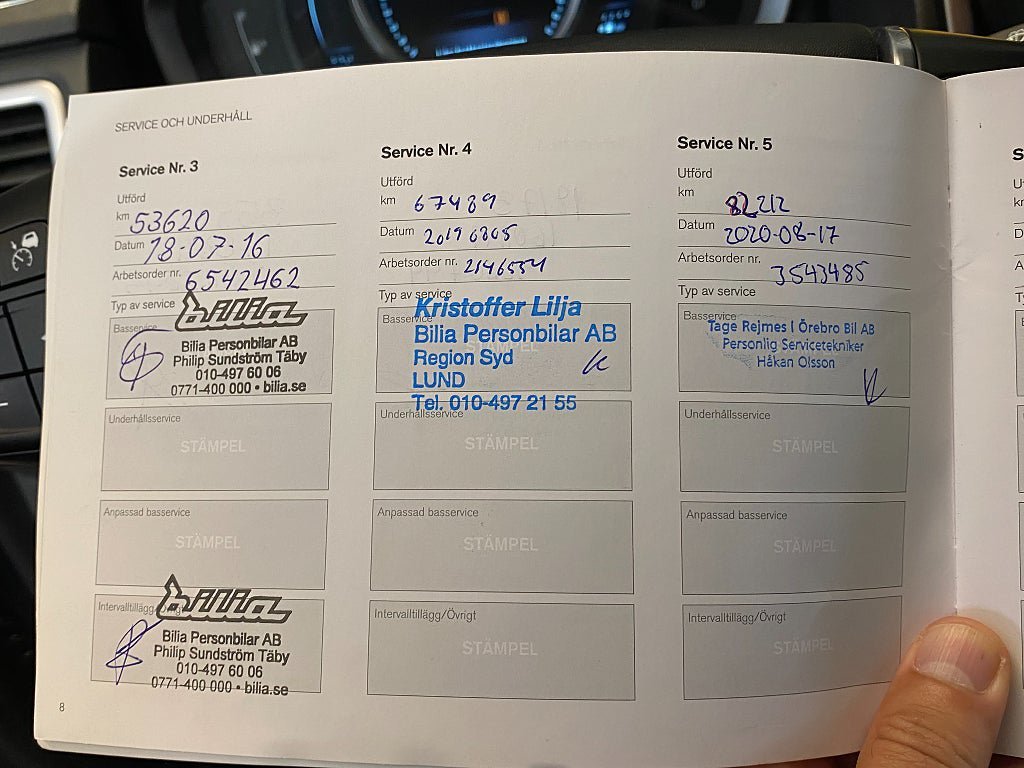 SERVICE OCH UNDERHÅLL
Service Nr. 3
Utförd
km 53620
Datum 18-07-16
Arbetsorder nr. 6542462
Typ av service
Basservice
bilia
Bilia Personbilar AB
Philip Sundström Täby
010-497 60 06
0771-400 000 • bilia.se
Underhållsservice
STÄMPEL
Anpassad basservice
STÄMPEL
Intervalltillägg/Övrigt
bilia
Bilia Personbilar AB
Philip Sundström Täby
010-497 60 06
0771-400 000 • bilia.se
8
Service Nr. 4
Utförd
km 67489
Datum 20190805
Arbetsorder nr. 2146554
Typ av service
Basservice
Kristoffer Lilja
Bilia Personbilar AB
Region Syd
LUND
Tel. 010-497 21 55
Underhållsservice
STÄMPEL
Anpassad basservice
STÄMPEL
Intervalltillägg/Övrigt
STÄMPEL
Service Nr. 5
Utförd
km 82212
Datum 2020-08-17
Arbetsorder nr. 3543485
Typ av service
Basservice
Tage Rejmes i Örebro Bil AB
Personlig Servicetekniker
Håkan Olsson
Underhållsservice
STÄMPEL
Anpassad basservice
STÄMPEL
Intervalltillägg/Övrigt
STÄMPEL